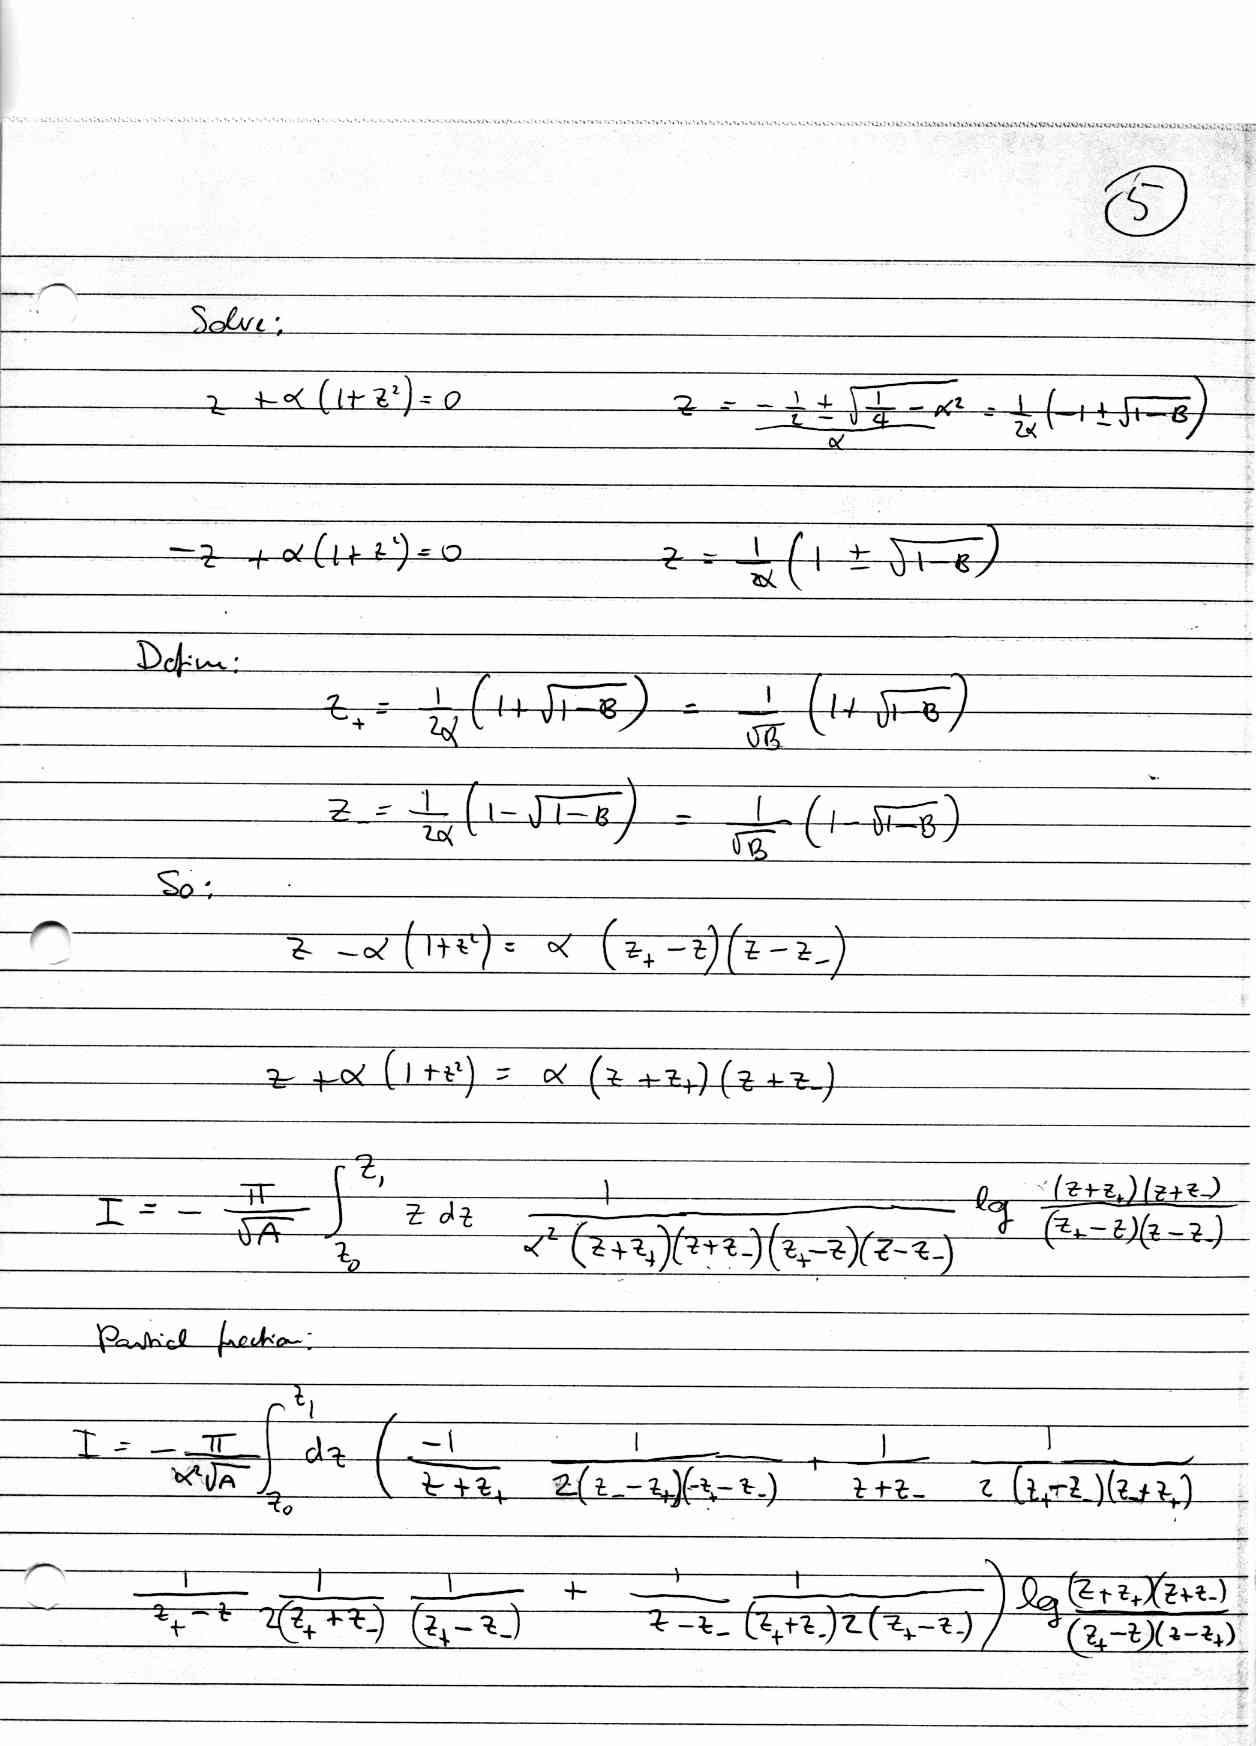 5
Solve:
z + α(1+z²) = 0    z = (-1/2 ± √(1/4 - α²))/α = 1/2α (-1 ± √(1-B))
-z + α(1+z²) = 0    z = 1/2α (1 ± √(1-B))
Define:
z₊ = 1/2α (1+√(1-B)) = 1/√B (1+√(1-B))
z₋ = 1/2α (1-√(1-B)) = 1/√B (1-√(1-B))
So:
z - α(1+z²) = α (z₊ - z)(z - z₋)
z + α(1+z²) = α (z + z₊)(z + z₋)
I = - π/√A ∫_{z₀}^{z₁} z dz 1/(α²(z+z₊)(z+z₋)(z₊-z)(z-z₋)) log ((z+z₊)(z+z₋))/((z₊-z)(z-z₋))
Partial fraction:
I = - π/(α²√A) ∫_{z₀}^{z₁} dz ( -1/(z+z₊) 1/(2(z₋-z₊)(-z₊-z₋)) + 1/(z+z₋) 1/(2(z₊-z₋)(z₋+z₊))
1/(z₊-z) 1/(2(z₊+z₋)) 1/(z₊-z₋) + 1/(z-z₋) 1/((z₊+z₋)2(z₊-z₋)) ) log ((z+z₊)(z+z₋))/((z₊-z)(z-z₊))